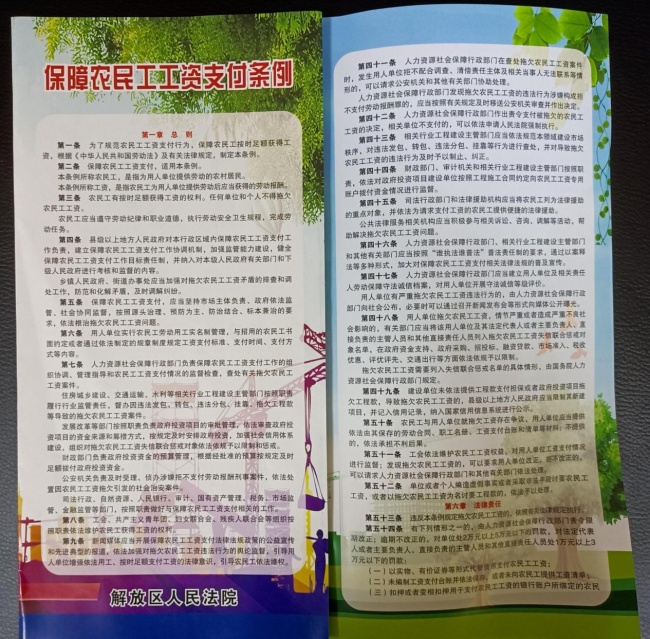 保障农民工工资支付条例
第一章 总 则
第一条 为了规范农民工工资支付行为，保障农民工按时足额获得工
资，根据《中华人民共和国劳动法》及有关法律规定，制定本条例。
第二条 保障农民工工资支付，适用本条例。
本条例所称农民工，是指为用人单位提供劳动的农村居民。
本条例所称工资，是指农民工为用人单位提供劳动后应当获得的劳动报酬。
第三条 农民工有按时足额获得工资的权利。任何单位和个人不得拖欠
农民工工资。
农民工应当遵守劳动纪律和职业道德，执行劳动安全卫生规程，完成劳
动任务。
第四条 县级以上地方人民政府对本行政区域内保障农民工工资支付工
作负责，建立保障农民工工资支付工作协调机制，加强监管能力建设，健全
保障农民工工资支付工作目标责任制，并纳入对本级人民政府有关部门和下
级人民政府进行考核和监督的内容。
乡镇人民政府、街道办事处应当加强对拖欠农民工工资矛盾的排查和调
处工作，防范和化解矛盾，及时调解纠纷。
第五条 保障农民工工资支付，应当坚持市场主体负责、政府依法监
管、社会协同监督，按照源头治理、预防为主、防治结合、标本兼治的要
求，依法根治拖欠农民工工资问题。
第六条 用人单位实行农民工劳动用工实名制管理，与招用的农民工书
面约定或者通过依法制定的规章制度规定工资支付标准、支付时间、支付方
式等内容。
第七条 人力资源社会保障行政部门负责保障农民工工资支付工作的组
织协调、管理指导和农民工工资支付情况的监督检查，查处有关拖欠农民工
工资案件。
住房城乡建设、交通运输、水利等相关行业工程建设主管部门按照职责
履行行业监管责任，督办因违法发包、转包、违法分包、挂靠、拖欠工程款
等导致的拖欠农民工工资案件。
发展改革等部门按照职责负责政府投资项目的审批管理，依法审查政府投
资项目的资金来源和筹措方式，按规定及时安排政府投资，加强社会信用体系
建设，组织对拖欠农民工工资失信联合惩戒对象依法依规予以限制和惩戒。
财政部门负责政府投资资金的预算管理，根据经批准的预算按规定及时
足额拨付政府投资资金。
公安机关负责及时受理、侦办涉嫌拒不支付劳动报酬刑事案件，依法处
置因农民工工资拖欠引发的社会治安案件。
司法行政、自然资源、人民银行、审计、国有资产管理、税务、市场监
管、金融监管等部门，按照职责做好与保障农民工工资支付相关的工作。
第八条 工会、共产主义青年团、妇女联合会、残疾人联合会等组织按
照职责依法维护农民工获得工资的权利。
第九条 新闻媒体应当开展保障农民工工资支付法律法规政策的公益宣传
和先进典型的报道，依法加强对拖欠农民工工资违法行为的舆论监督，引导用
人单位增强依法用工、按时足额支付工资的法律意识，引导农民工依法维权。
解放区人民法院
第四十一条 人力资源社会保障行政部门在查处拖欠农民工工资案件
时，发生用人单位拒不配合调查、清偿责任主体及相关当事人无法联系等情
形的，可以请求公安机关和其他有关部门协助处理。
人力资源社会保障行政部门发现拖欠农民工工资的违法行为涉嫌构成拒
不支付劳动报酬罪的，应当按照有关规定及时移送公安机关审查并作出决定。
第四十二条 人力资源社会保障行政部门作出责令支付被拖欠的农民工
工资的决定，相关单位不支付的，可以依法申请人民法院强制执行。
第四十三条 相关行业工程建设主管部门应当依法规范本领域建设市场
秩序，对违法发包、转包、违法分包、挂靠等行为进行查处，并对导致拖欠
农民工工资的违法行为及时予以制止、纠正。
第四十四条 财政部门、审计机关和相关行业工程建设主管部门按照职
责，依法对政府投资项目建设单位按照工程施工合同约定向农民工工资专用
账户拨付资金情况进行监督。
第四十五条 司法行政部门和法律援助机构应当将农民工列为法律援助
的重点对象，并依法为请求支付工资的农民工提供便捷的法律援助。
公共法律服务相关机构应当积极参与相关诉讼、咨询、调解等活动，帮
助解决拖欠农民工工资问题。
第四十六条 人力资源社会保障行政部门、相关行业工程建设主管部门
和其他有关部门应当按照“谁执法谁普法”普法责任制的要求，通过以案释
法等多种形式，加大对保障农民工工资支付相关法律法规的普及宣传。
第四十七条 人力资源社会保障行政部门应当建立用人单位及相关责任
人劳动保障守法诚信档案，对用人单位开展守法诚信等级评价。
用人单位有严重拖欠农民工工资违法行为的，由人力资源社会保障行政
部门向社会公布，必要时可以通过召开新闻发布会等形式向媒体公开曝光。
第四十八条 用人单位拖欠农民工工资，情节严重或者造成严重不良社
会影响的，有关部门应当将该用人单位及其法定代表人或者主要负责人、直
接负责的主管人员和其他直接责任人员列入拖欠农民工工资失信联合惩戒对
象名单，在政府资金支持、政府采购、招投标、融资贷款、市场准入、税收
优惠、评优评先、交通出行等方面依法依规予以限制。
拖欠农民工工资需要列入失信联合惩戒名单的具体情形，由国务院人力
资源社会保障行政部门规定。
第四十九条 建设单位未依法提供工程款支付担保或者政府投资项目拖
欠工程款，导致拖欠农民工工资的，县级以上地方人民政府应当限制其新建
项目，并记入信用记录，纳入国家信用信息系统进行公示。
第五十条 农民工与用人单位就拖欠工资存在争议，用人单位应当提供
依法由其保存的劳动合同、职工名册、工资支付台账和清单等材料；不提供
的，依法承担不利后果。
第五十一条 工会依法维护农民工工资权益，对用人单位工资支付情况
进行监督；发现拖欠农民工工资的，可以要求用人单位改正，拒不改正的，
可以请求人力资源社会保障行政部门和其他有关部门依法处理。
第五十二条 单位或者个人编造虚假事实或者采取非法手段讨要农民工
工资，或者以拖欠农民工工资为名讨要工程款的，依法予以处理。
第六章 法律责任
第五十三条 违反本条例规定拖欠农民工工资的，依照有关法律规定执行。
第五十四条 有下列情形之一的，由人力资源社会保障行政部门责令限
期改正；逾期不改正的，对单位处2万元以上5万元以下的罚款，对法定代表
人或者主要负责人、直接负责的主管人员和其他直接责任人员处1万元以上3
万元以下的罚款：
（一）以实物、有价证券等形式代替货币支付农民工工资；
（二）未编制工资支付台账并依法保存，或者未向农民工提供工资清单；
（三）扣押或者变相扣押用于支付农民工工资的银行账户所绑定的农民